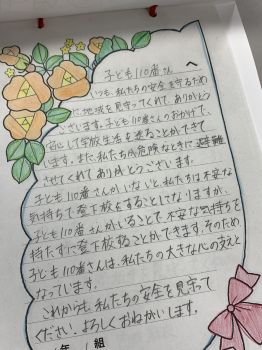 子ども110番さん へ
いつも、私たちの安全を守るため
に地域を見守ってくれて、ありがとう
ございます。子ども110番さんのおかげで、
安心して学校生活を送ることができて
います。また、私たちが危険なときに避難
させてくれてありがとうございます。
子ども110番さんがいないと、私たちは不安な
気持ちで登下校をすることになりますが、
子ども110番さんがいることで、不安な気持ちを
持たずに登下校することができます。そのため
子ども110番さんは、私たちの大きな心の支えと
なっています。
これからも、私たちの安全を見守って
ください。よろしくおねがいします。
年 組